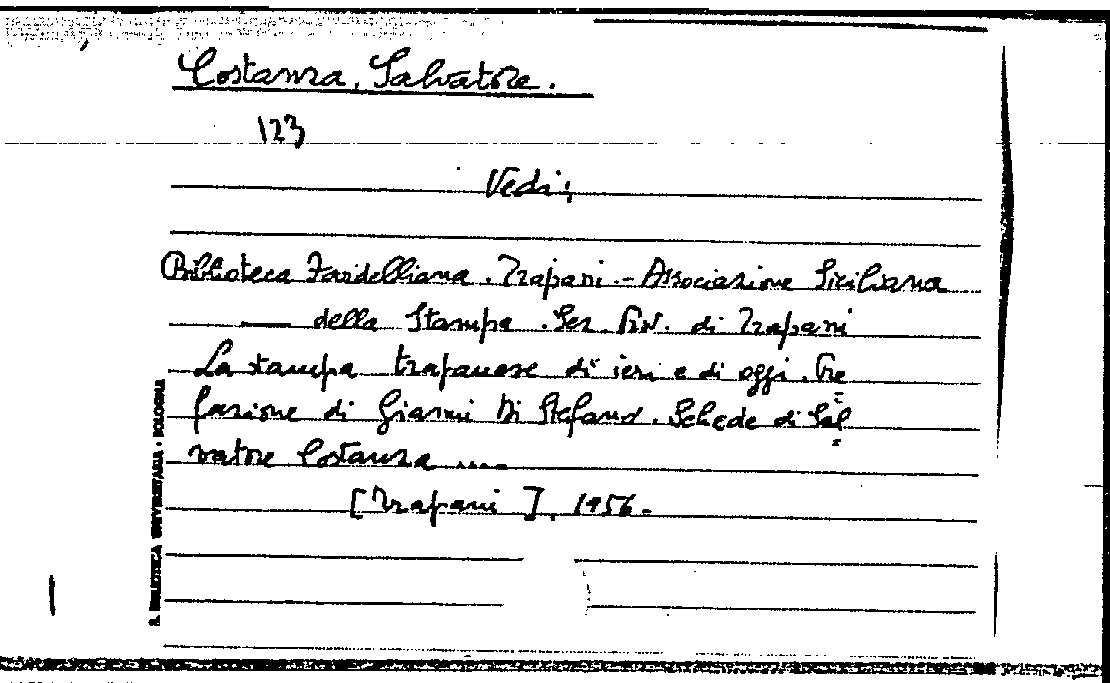 Costanza, Salvatore.
123
Vedi:
Biblioteca Fardelliana. Trapani. - Associazione Siciliana
della Stampa. Sez. Prov. di Trapani
La stampa trapanese di ieri e di oggi. Pre=
fazione di Gianni Di Stefano. Schede di Sal=
vatore Costanza ....
[Trapani], 1956.
B. BIBLIOTECA UNIVERSITARIA - BOLOGNA